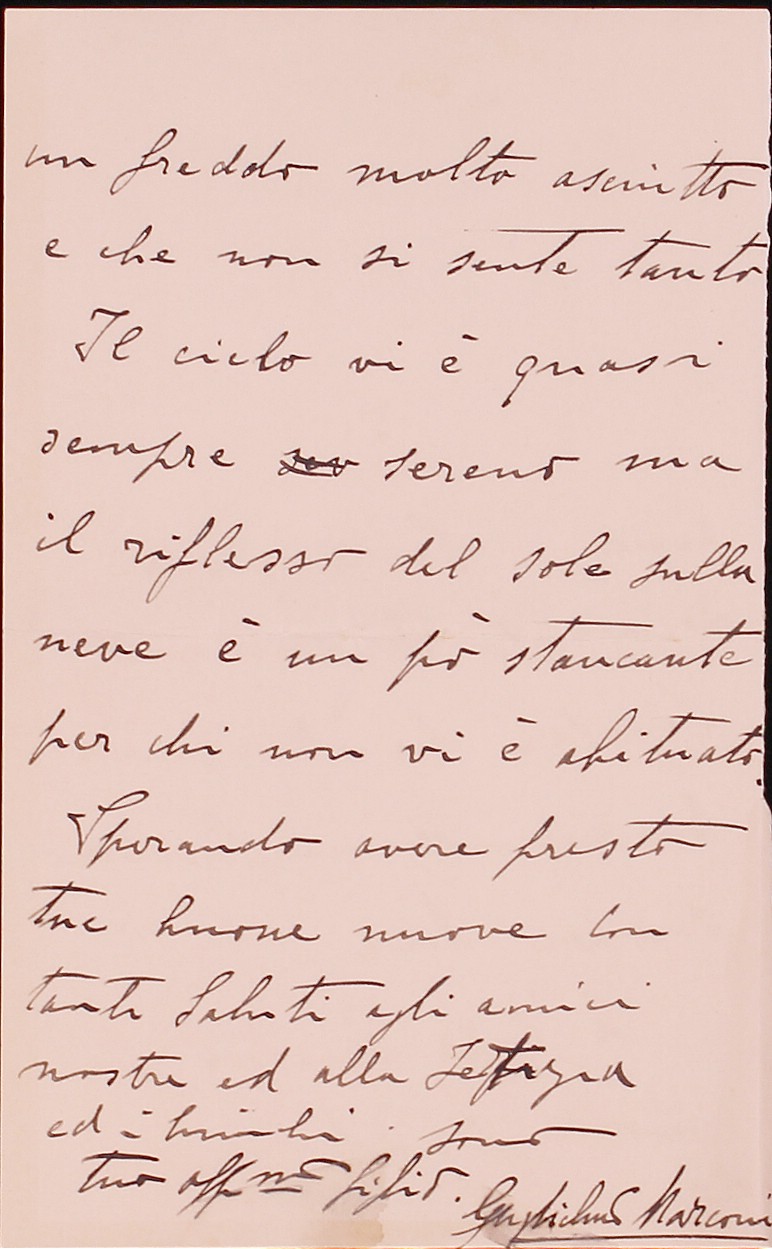 un freddo molto asciutto
e che non si sente tanto
Il cielo vi è quasi
sempre sereno ma
il riflesso del sole sulla
neve è un pò stancante
per chi non vi è abituato.
Sperando avere presto
tue buone nuove con
tanti saluti agli amici
nostri ed alla
ed i sono
tuo affmo figlio. Guglielmo Marconi